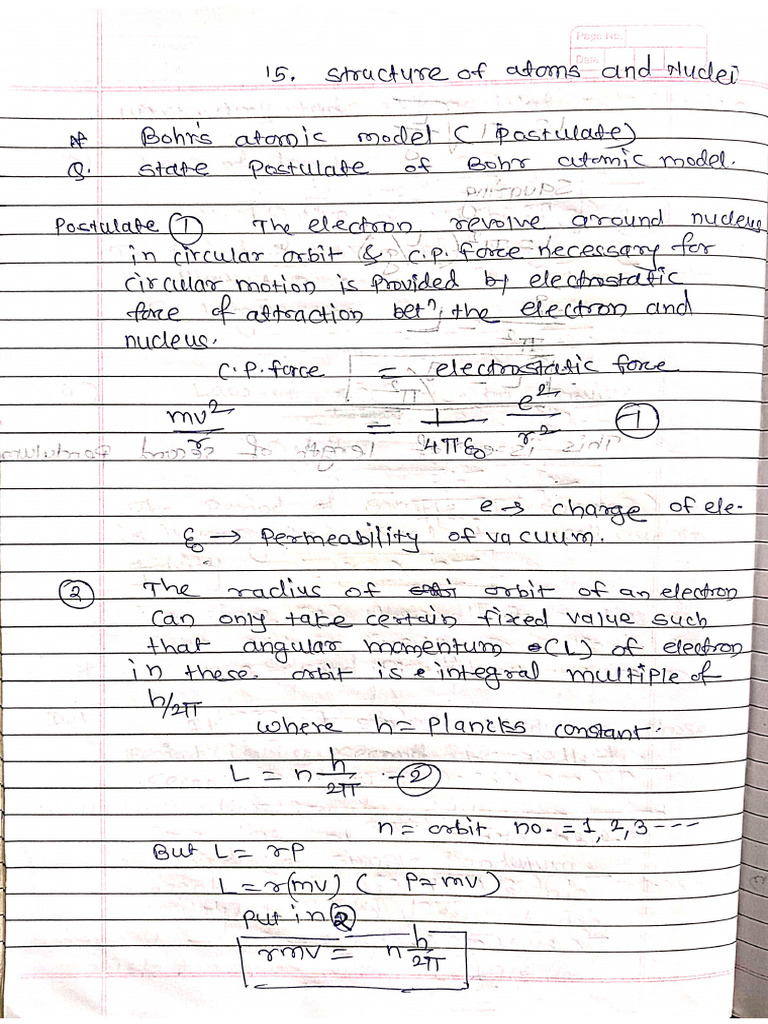 Page No.
Date
15. Structure of atoms and Nuclei
Bohr's atomic model (Postulate)
Q. State Postulate of Bohr atomic model.
Postulate ① The electron revolve around nucleus
in circular orbit & c.p. force necessary for
circular motion is provided by electrostatic
force of attraction betⁿ, the electron and
nucleus.
C.P. force = electrostatic force
mv²/r = 1/4πε₀ e²/r² ①
e → charge of ele.
ε₀ → permeability of vacuum.
② The radius of orbit of an electron
can only take certain fixed value such
that angular momentum (L) of electron
in these. orbit is integral multiple of
h/2π
where h = Plancks constant.
L = n h/2π -②
n = orbit no. = 1, 2, 3 ---
But L = rp
L = r(mv) ( P = mv)
put in ②
rmv = n h/2π